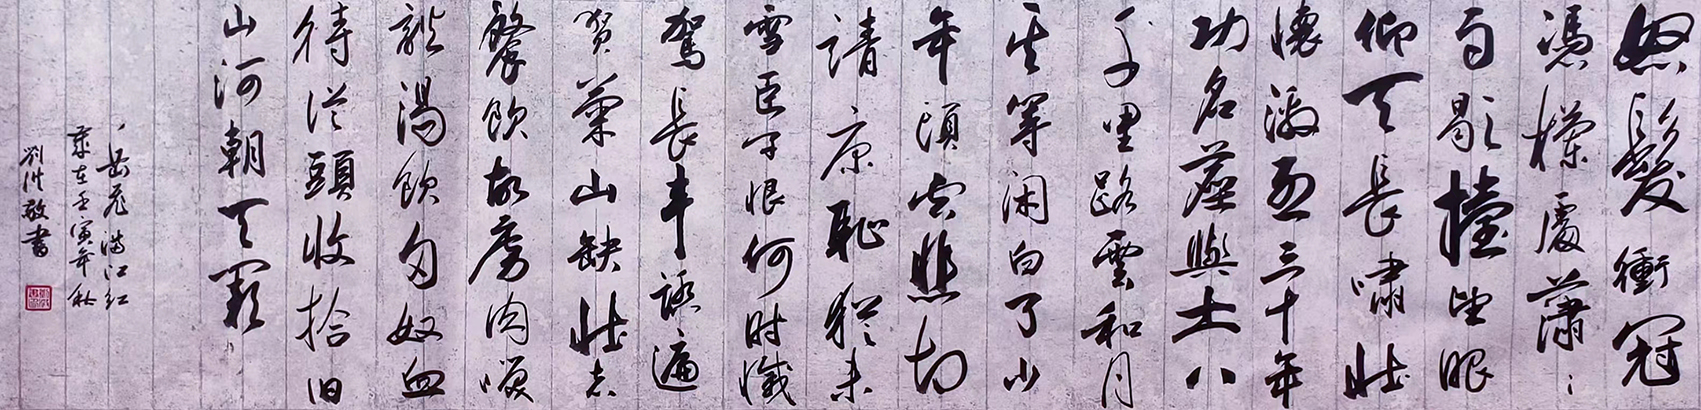 怒髮衝冠
憑欄處蕭〻
雨歇擡望眼
仰天長嘯壯
懷激烈三十年
功名塵與土八
千里路雲和月
莫等閑白了少
年頭空悲切
靖康恥猶未
雪臣子恨何时滅
駕長車踏遍
賀蘭山缺壯志
餐胡虜肉
談渴飲匈奴血
待從頭收拾旧
山河朝天闕
岳飛滿江紅
歲在壬寅年秋
劉洪敬書